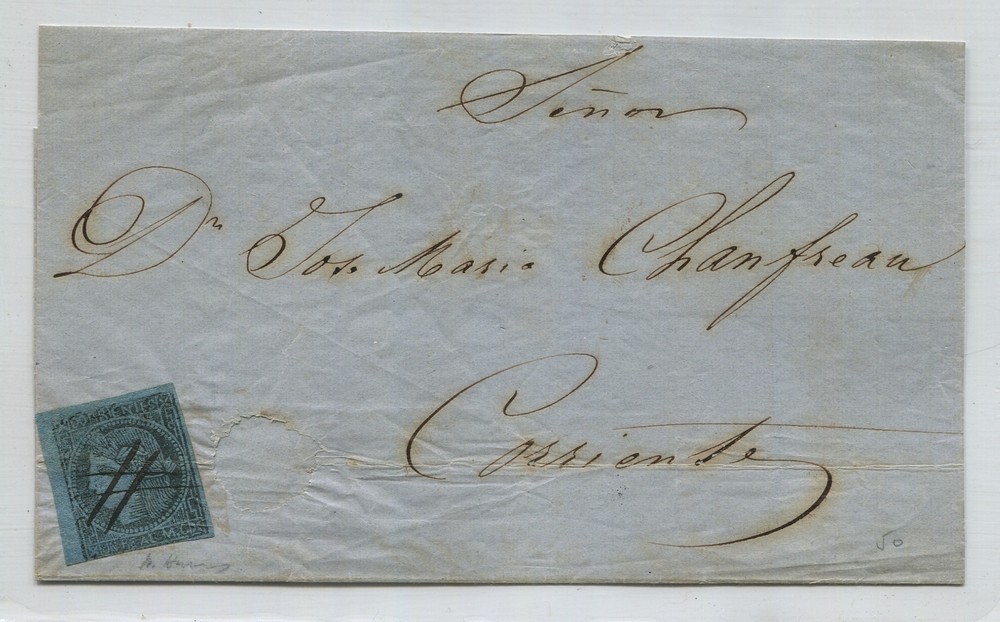 Señor
Dn Jose Maria Chanfreau
Corrientes
CORRIENTES
50